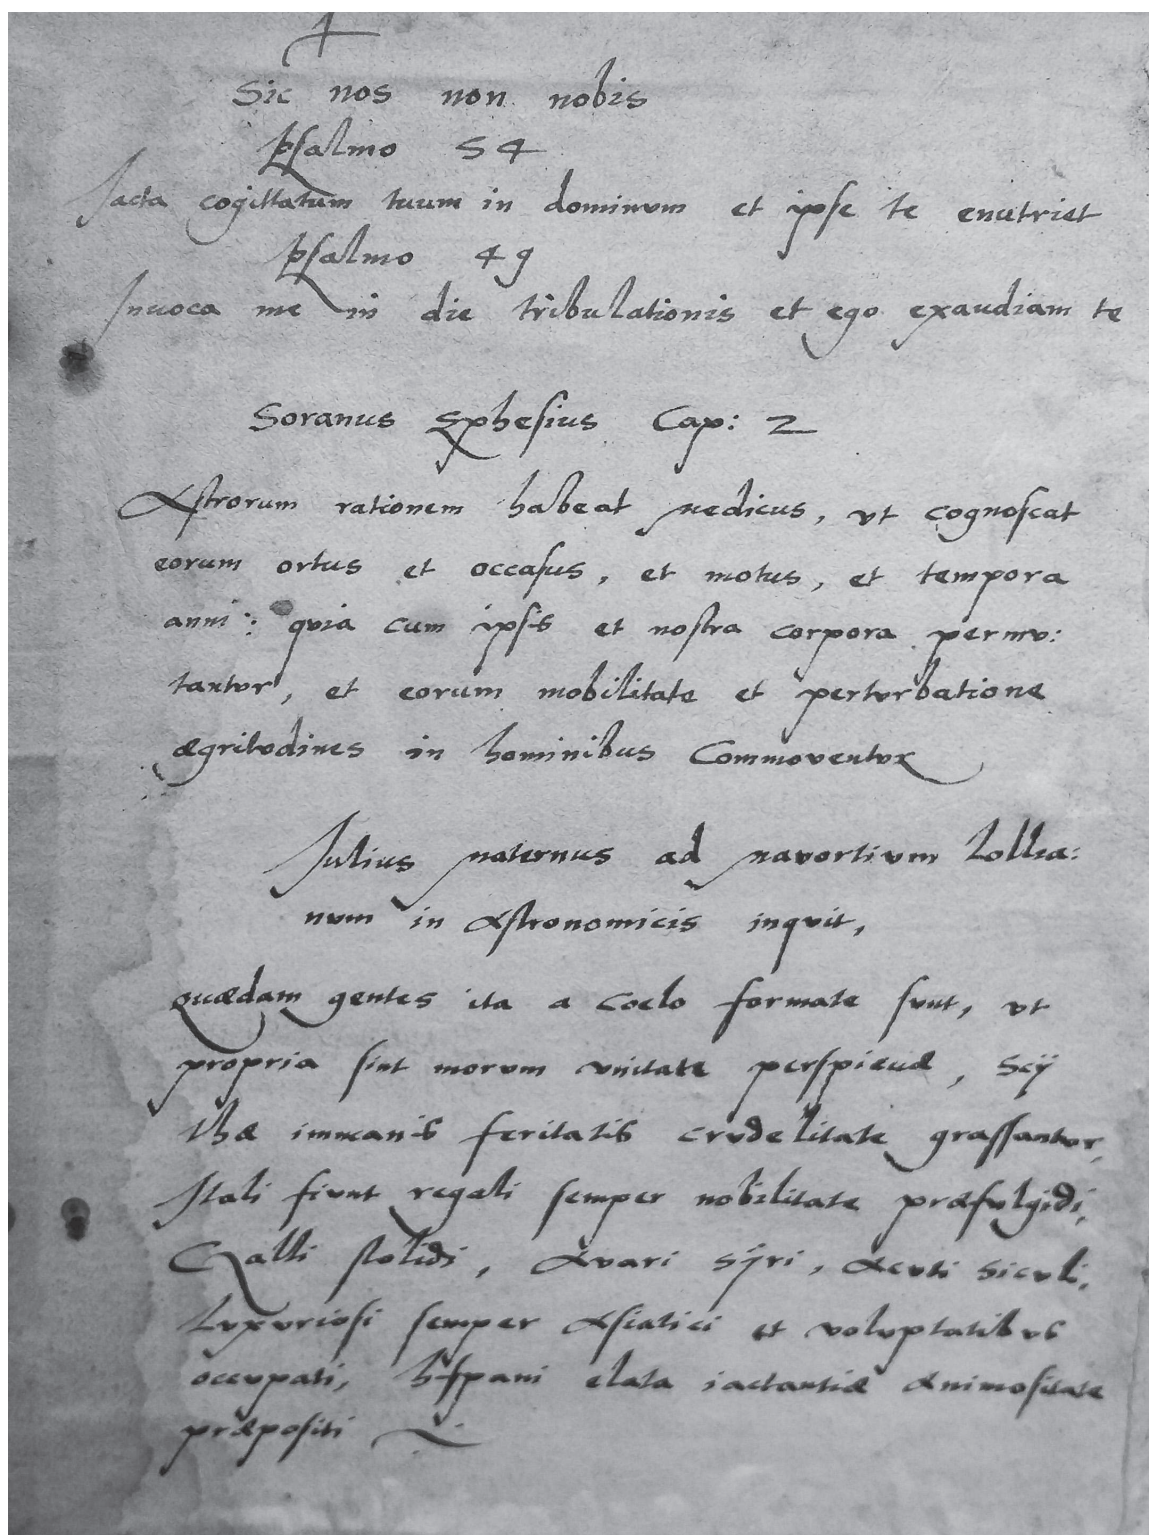 Sic nos non nobis
Psalmo 54
Jacta cogittatum tuum in dominum et ipse te enutriet
Psalmo 49
Invoca me in die tribulationis et ego exaudiam te
Soranus Ephesius Cap: 2
Astrorum rationem habeat medicus, vt cognoscat
eorum ortus et occasus, et motus, et tempora
anni: quia cum ipsis et nostra corpora permu:
tantur, et eorum mobilitate et perturbatione
ægritudines in hominibus Commoventur
Julius maternus ad mavortium Lollia:
num in Astronomicis inquit,
quædam gentes ita a coelo formate sunt, vt
propria sint morum vnitate perspicuæ, Scÿ
thæ immanis feritatis crudelitate grassantur,
Itali fiunt regali semper nobilitate præfulgidi,
Galli stolidi, Avari sÿri, Acuti siculi,
Luxuriosi semper Asiatici et voluptatibus
occupati, hispani elata iactantiæ Animositate
præpositi